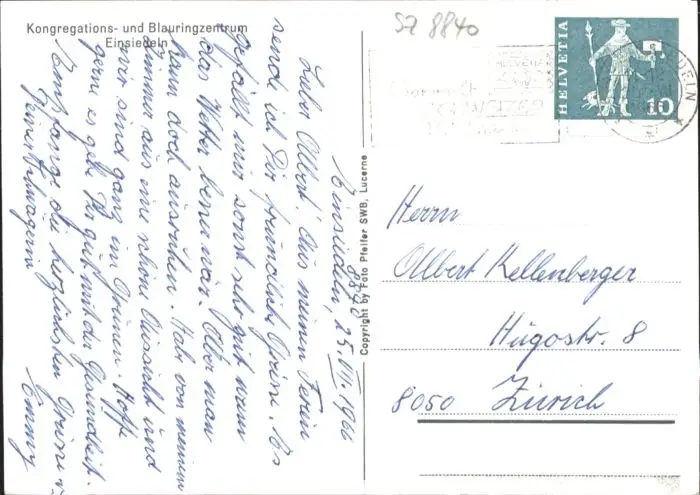 Kongregations- und Blauringzentrum
Einsiedeln
SZ 8840
HELVETIA
10
Einsiedeln, 25. VII. 1966
8840
Lieber Albert! Aus meinen Ferien
sende ich Dir freundliche Grüsse. Es
gefällt mir sonst sehr gut wenn
das Wetter besser wär. Aber man
kann doch ausruhen. Hab von meinem
Zimmer aus eine schöne Aussicht und
wir sind ganz im Grünen. Hoffe
gerne es gehe Dir gut mit der Gesundheit.
Empfange die herzlichsten Grüsse v.
Deiner Schwägerin
Emmy
Copyright by Foto Pfeifer SWB, Lucerne
Herrn
Albert Kellenberger
Hügostr. 8
8050 Zürich